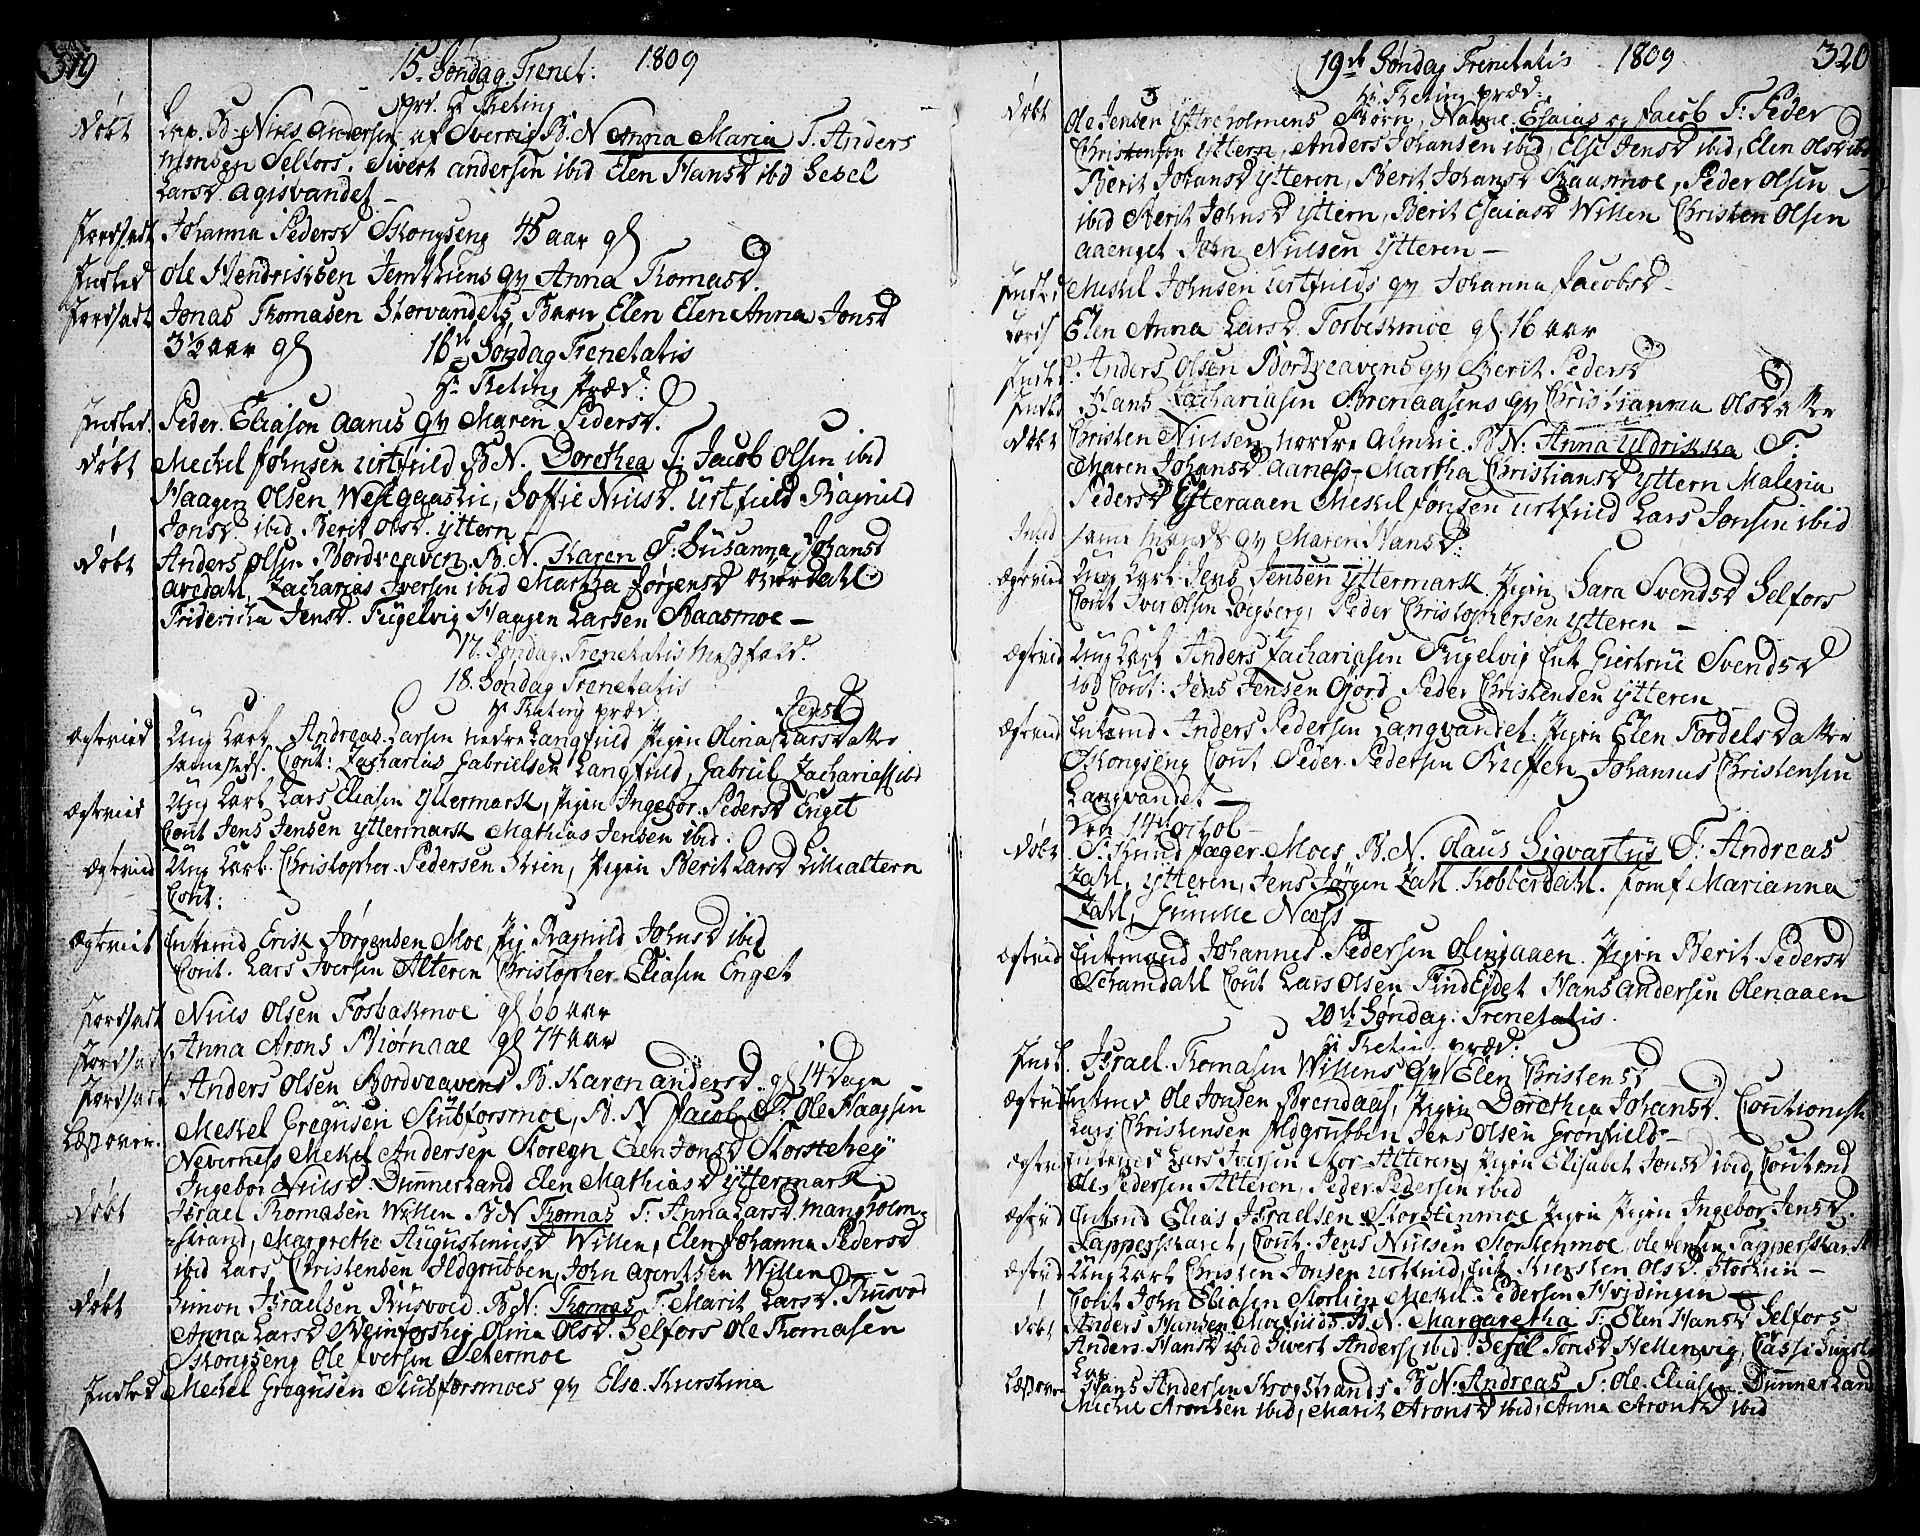 319
15. Søndag Trenet: 1809
Hr. Theting
Døbt Lap. B: Niels Andersen af Sverrig B. N Anna Maria T. Anders
Monsen Selfors, Sivert andersen ibid Elen Hansd ibd Sebel
Larsd Agisvandet —
Jordfæst Johanna Pedersd Skongseng 45 aar gl
Indled Ole Hendrichsen Jemthlens qv Anna Thomasd.
Jordfæst Jonas Thomasen Storvandets Barn Elen Elen Anna Jonsd
3½ aar gl 16de Søndag Trenetatis
Hr. Theting Præd:
Indled. Peder Eliason Aanes qv Maren Pedersd.
Døbt Mechel Johnsen Urtfield B N. Dorethea T: Jacob Olsen ibid
Haagen Olsen Westgaaslie, Soffie Nielsd. Urtfield Ragnild
Jonsd. ibid Berit Olsd. Yttern
Døbt Anders Olsen Bordveaven. B. N. Karen T: Susanna Johansd
Avedahl, Zacharias Iversen ibid Martha Jørgensd Overdahl
Fridericha Jensd. Fugelvig Haagen Larsen Baasmoe —
17. Søndag Trenetatis Messfald.
18. Søndag Trenetatis
Hr Theting præd
Jensd
Ægtevied Ung Karl Andreas Larsen nedre Langfield Pigen Olina Larsdatter
sammesteds. Cont: Zacharias Gabrielsen Langfield, Gabriel Zachariass ibd
Ægtevied Ung Karl Lars Eliasen Yttermark, Pigen Ingebor Pedersd Enget
Cout Jens Jensen Yttermark Mathias Jensen ibid.
Ægtevied Ung Karl Christopher Pedersen Skien, Pigen Berit Larsd Lillealtern
Cont:
Ægteviet Enkemd Erik Jørgensen Moe Pig Ragnild Johnsd ibid
Cont. Lars Iversen Alteren Christopher Eliasen Enget
Jordfæst Niels Olsen Fosbakmoe gl 66 aar
Jordfæst Anna Arons Biørnaae gl 74 aar
Jordfæst Anders Olsen Bordveavens B. Karen andersd. gl 14 Dage
Læst over. Mekel Gregusen Stubforsmoe, B. N Jacob T. Ole Haagsen
Neverness Mekel Andersen Storegn Elen Jonsd Storstehey
Ingebor Nielsd. Dunnerland Elen Mathiasd Yttermark
Døbt Israel Thomasen Willen B N Thomas T: Anna Larsd. Mangholm-
-strand, Margrethe Augustinusd Willen, Elen Johanna Pedersd
ibid Lars Christensen Ildgrubben, John Arentsen Willen
Døbt Simon Israelsen Rusvold. B N: Thomas T. Marit Larsd. Rusvod
Anna Larsd Olina Olsd. Selfors Ole Thomasen
Skongseng Ole Iversen Setermoe
Indled Mechel Gregusen Stubforsmoes qv Else Kierstina
320
19de Søndag Trenetatis 1809
Hr. Theting præd:
Døbt Ole Jensen Yttreholmens Børn, Nafne Esaias og Jacob T: Peder
Christensen Yttern, Anders Johansen ibid, Else Jensd ibid, Elen Olsd ibd
Berit Johansd Ytteren, Berit Johansd Baasmoe, Peder Olsen
ibid Marit Johnsd Yttern, Berit Esaiasd Willen Christen Olsen
Aaenget John Nielsen Ytteren —
Indled Mekel Johnsen Urtfields qv Johanna Jacobsd
Elen Anna Larsd. Forbeskmoe gl 16 aar
Indled. Anders Olsen Bordveavens qv Berit Pedersd
Indled Hans Zachariasen Brenaasens qv Christianna Olsdatter
Døbt Christen Nielsen Nordre Almlie B N: Anna Uldrikka T:
Maren Johansd Aaness, Martha Christiansd Yttern Maleria
Pedersd Ytteraaen Mekel Jonsen Urtfield Lars Jonsen ibid
Indled samme mands qv Maren Hansd:
Ægtevied Ung Karl Jens Jensen Yttermark Pigen Sara Svendsd Selfors
Cout Iver Olsen Løegberg, Peder Christophersen Ytteren —
Ægtevid Ung Karl Anders Zachariasen Fugelvig Enk Giertrue Svendsd
ibd Cout: Jens Jensen Giord Peder Christensen Ytteren
Ægtevied Enkemd Anders Pedersen Langvandet. Pigen Elen Fordelsdatter
Skongseng Cout Peder Pedersen Johannes Christensen
Langvandet —
Den 14de Octob
Døbt S. Knud Jæger Moes B. N. Olaus Sigvartus T: Andreas
Zahl, Ytteren, Jens Jørgen Zahl Kobberdahl. Jomf Marianna
Zahl, Gunille Næss
Ægtevid Enkemand Johannes Pedersen Olenaaen. Pigen Berit Pedersd
Schamdahl Cout Lars Olsen FindEydet Hans Andersen Olenaaen
20de Søndag: Trenetatis.
Hr Theting præd:
Indl. Israel Thomasen Willens qv Elen Christensd
Ægtevied Enkemd Ole Jonsen Brendaas, Pigen Dorethea Johansd. Coutionest
Lars Christensen Ildgrubben Jens Olsen Grønfield —
Ægtevi Enkemd Lars Iversen Stor-Alteren, Pigen Elisabet Jonsd ibid, Cout end
Ole Pedersen Alteren, Peder Pedersen ibid
Ægtevid Enkemd Elias Israelsen Storstenmoe Pigen Pigen Ingebor Jensd.
Tapperskaret, Cout. Jens Nielsen Storstenmoe, Ole Jensen Tapperskaret
Ægtevid Ung Karl Christen Jonsen Urtfield, Enk Kiersten Olsd. Storlien —
Cout John Eliasen Storlien Mekel Pedersen Hvidingen —
Døbt Anders Hansen Moefields B. N. Margaretha T: Elen Hansd Selfors
Anders Hansn ibid Sivert Anderss ibid Sefel Tonsd Hellervig,
Lap
Læst over Hans Andersen Krogstrands B N: Andreas T: Ole Eliasen Dunnerland
Michel Aronsen ibid, Marit Aronsd ibid, Anna Aronsd ibid